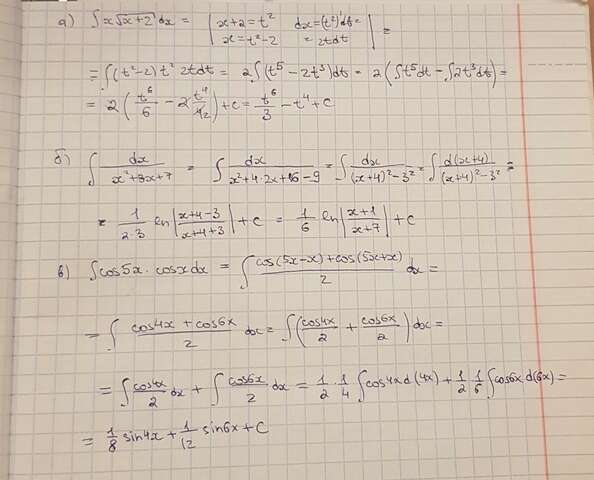 а) ∫x√(x+2) dx = | x+2=t² dx=(t²)'dt= | =
x=t²-2 =2tdt
= ∫(t²-2)t² 2tdt = 2∫(t⁵-2t³)dt = 2(∫t⁵dt - ∫2t³dt) =
= 2(t⁶/6 - 2 t⁴/4) + c = t⁶/3 - t⁴ + c
б) ∫ dx/(x²+8x+7) = ∫ dx/(x²+4·2x+16-9) = ∫ dx/((x+4)²-3²) = ∫ d(x+4)/((x+4)²-3²) =
= 1/(2·3) ln|(x+4-3)/(x+4+3)| + c = 1/6 ln|(x+1)/(x+7)| + c
в) ∫cos5x·cosxdx = ∫ (cos(5x-x)+cos(5x+x))/2 dx =
= ∫ (cos4x+cos6x)/2 dx = ∫(cos4x/2 + cos6x/2)dx =
= ∫ cos4x/2 dx + ∫ cos6x/2 dx = 1/2·1/4 ∫cos4xd(4x) + 1/2·1/6 ∫cos6xd(6x) =
= 1/8 sin4x + 1/12 sin6x + C